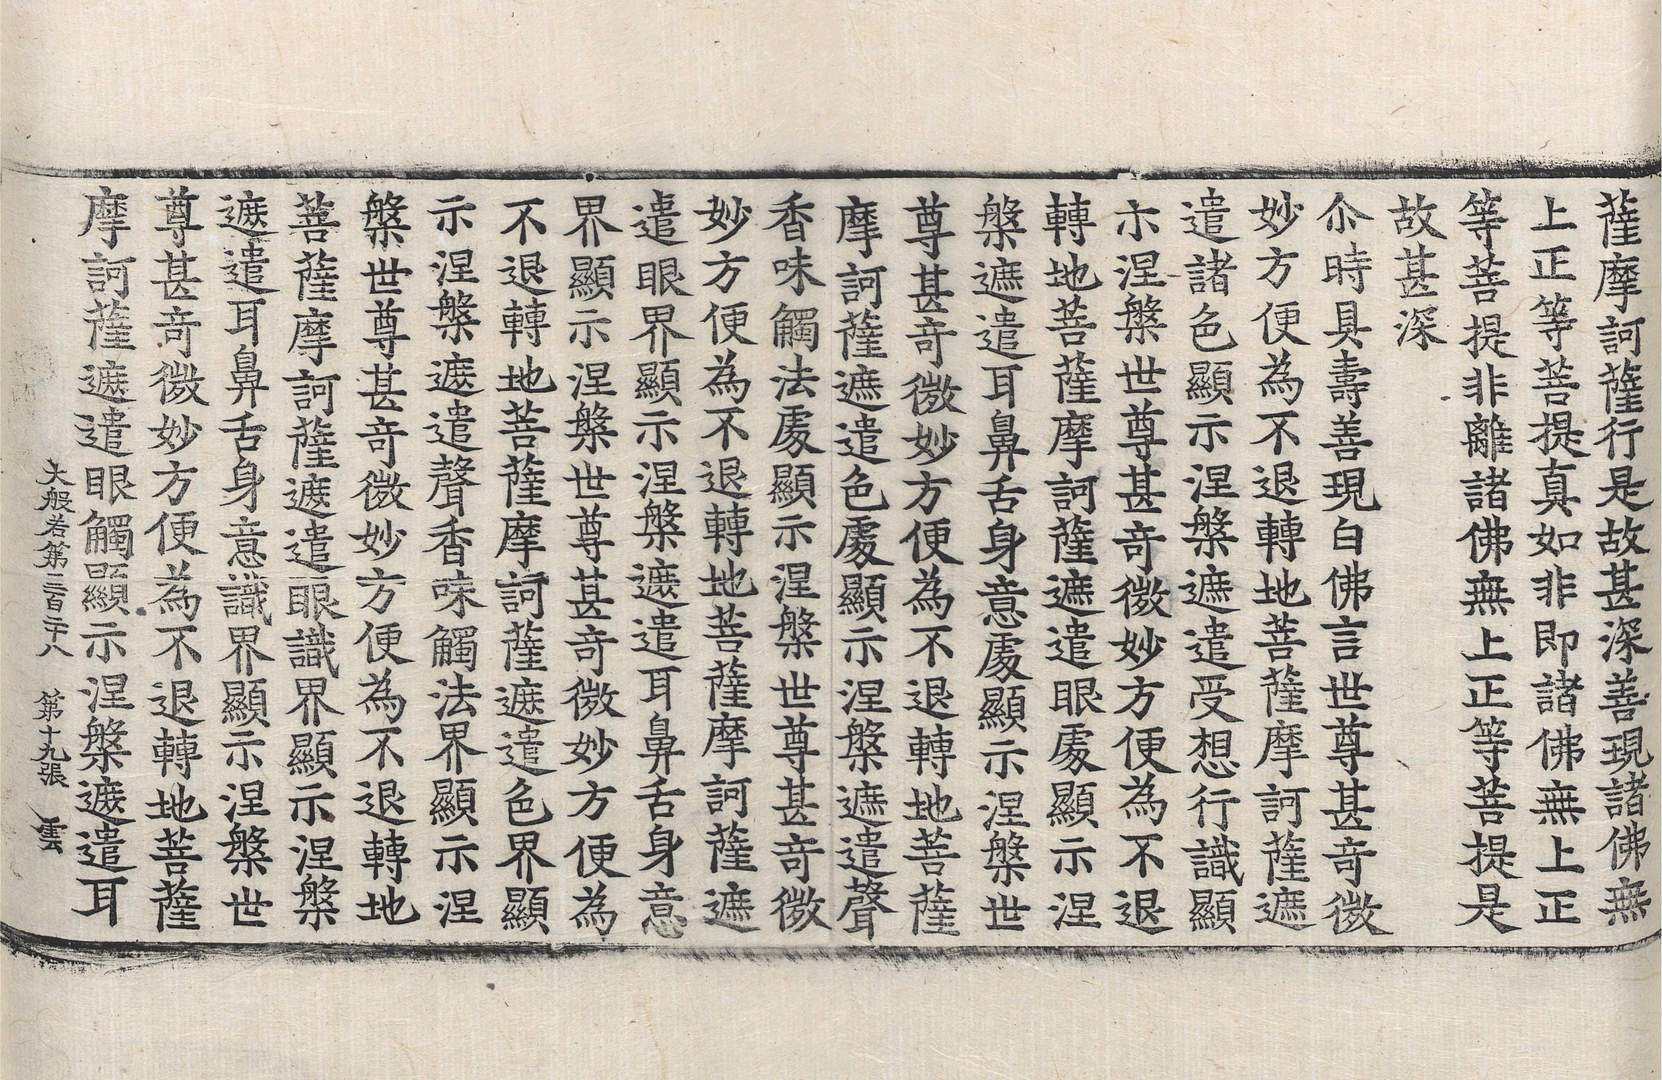 薩摩訶薩行是故甚深善現諸佛無
上正等菩提真如非即諸佛無上正
等菩提非離諸佛無上正等菩提是
故甚深
尒時具壽善現白佛言世尊甚竒微
妙方便為不退轉地菩薩摩訶薩遮
遣諸色顯示涅槃遮遣受想行識顯
示涅槃世尊甚竒微妙方便為不退
轉地菩薩摩訶薩遮遣眼處顯示涅
槃遮遣耳鼻舌身意處顯示涅槃世
尊甚竒微妙方便為不退轉地菩薩
摩訶薩遮遣色處顯示涅槃遮遣聲
香味觸法處顯示涅槃世尊甚竒微
妙方便為不退轉地菩薩摩訶薩遮
遣眼界顯示涅槃遮遣耳鼻舌身意
界顯示涅槃世尊甚竒微妙方便為
不退轉地菩薩摩訶薩遮遣色界顯
示涅槃遮遣聲香味觸法界顯示涅
槃世尊甚竒微妙方便為不退轉地
菩薩摩訶薩遮遣眼識界顯示涅槃
遮遣耳鼻舌身意識界顯示涅槃世
尊甚竒微妙方便為不退轉地菩薩
摩訶薩遮遣眼觸顯示涅槃遮遣耳
大般若第三百二十八 第十九張 雲